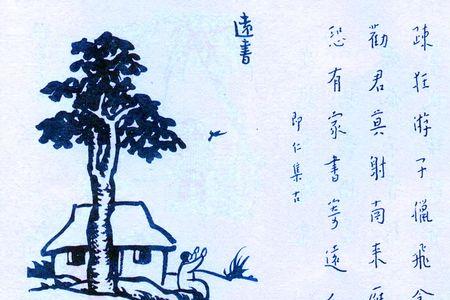 疎狂游子獵飛
勸君莫射南來雁
恐有家書寄遠
即仁集古
遠書